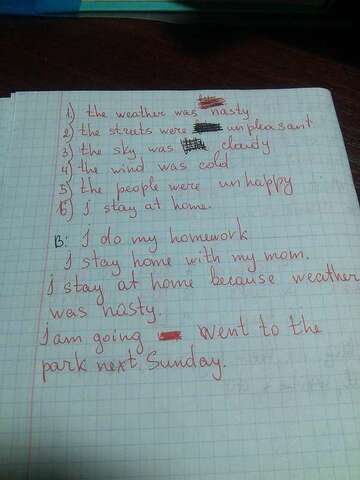 1) the weather was nasty
2) the struts were unpleasant
3) the sky was cloudy
4) the wind was cold
5) the people were unhappy
6) j stay at home.
B: J do my homework
j stay home with my mom.
j stay at home because weather
was nasty.
j am going went to the
park next Sunday.